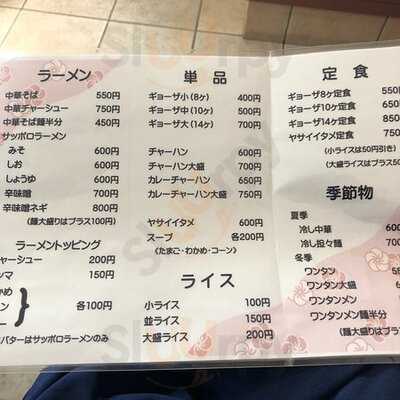 ラーメン
中華そば 550円
中華チャーシュー 750円
中華そば麺半分 450円
サッポロラーメン
みそ 600円
しお 600円
しょうゆ 600円
辛味噌 700円
辛味噌ネギ 800円
(麺大盛りはプラス100円)
ラーメントッピング
チャーシュー 200円
ンマ 150円
かめ
ン
各100円
バターはサッポロラーメンのみ
単品
ギョーザ小(8ヶ) 400円
ギョーザ中(10ヶ) 500円
ギョーザ大(14ヶ) 700円
チャーハン 600円
チャーハン大盛 750円
カレーチャーハン 600円
カレーチャーハン大盛 750円
ヤサイイタメ 600円
スープ 各200円
(たまご・わかめ・コーン)
ライス
小ライス 100円
並ライス 150円
大盛ライス 200円
定食
ギョーザ8ヶ定食 550
ギョーザ10ヶ定食 650
ギョーザ14ヶ定食 850
ヤサイイタメ定食 750
(小ライスは50円引き)
(大盛ライスはプラス50
季節物
夏季
冷し中華 600
冷し担々麺 700
冬季
ワンタン
ワンタン大盛
ワンタンメン
ワンタンメン麺半分
(麺大盛りはプラス